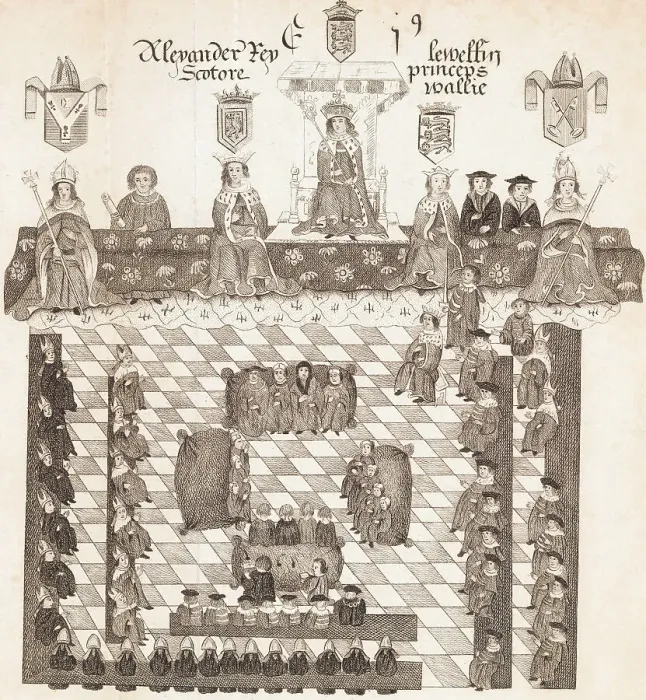 Alexander Rex
Scotore
E j9
lewellin
princeps
wallie